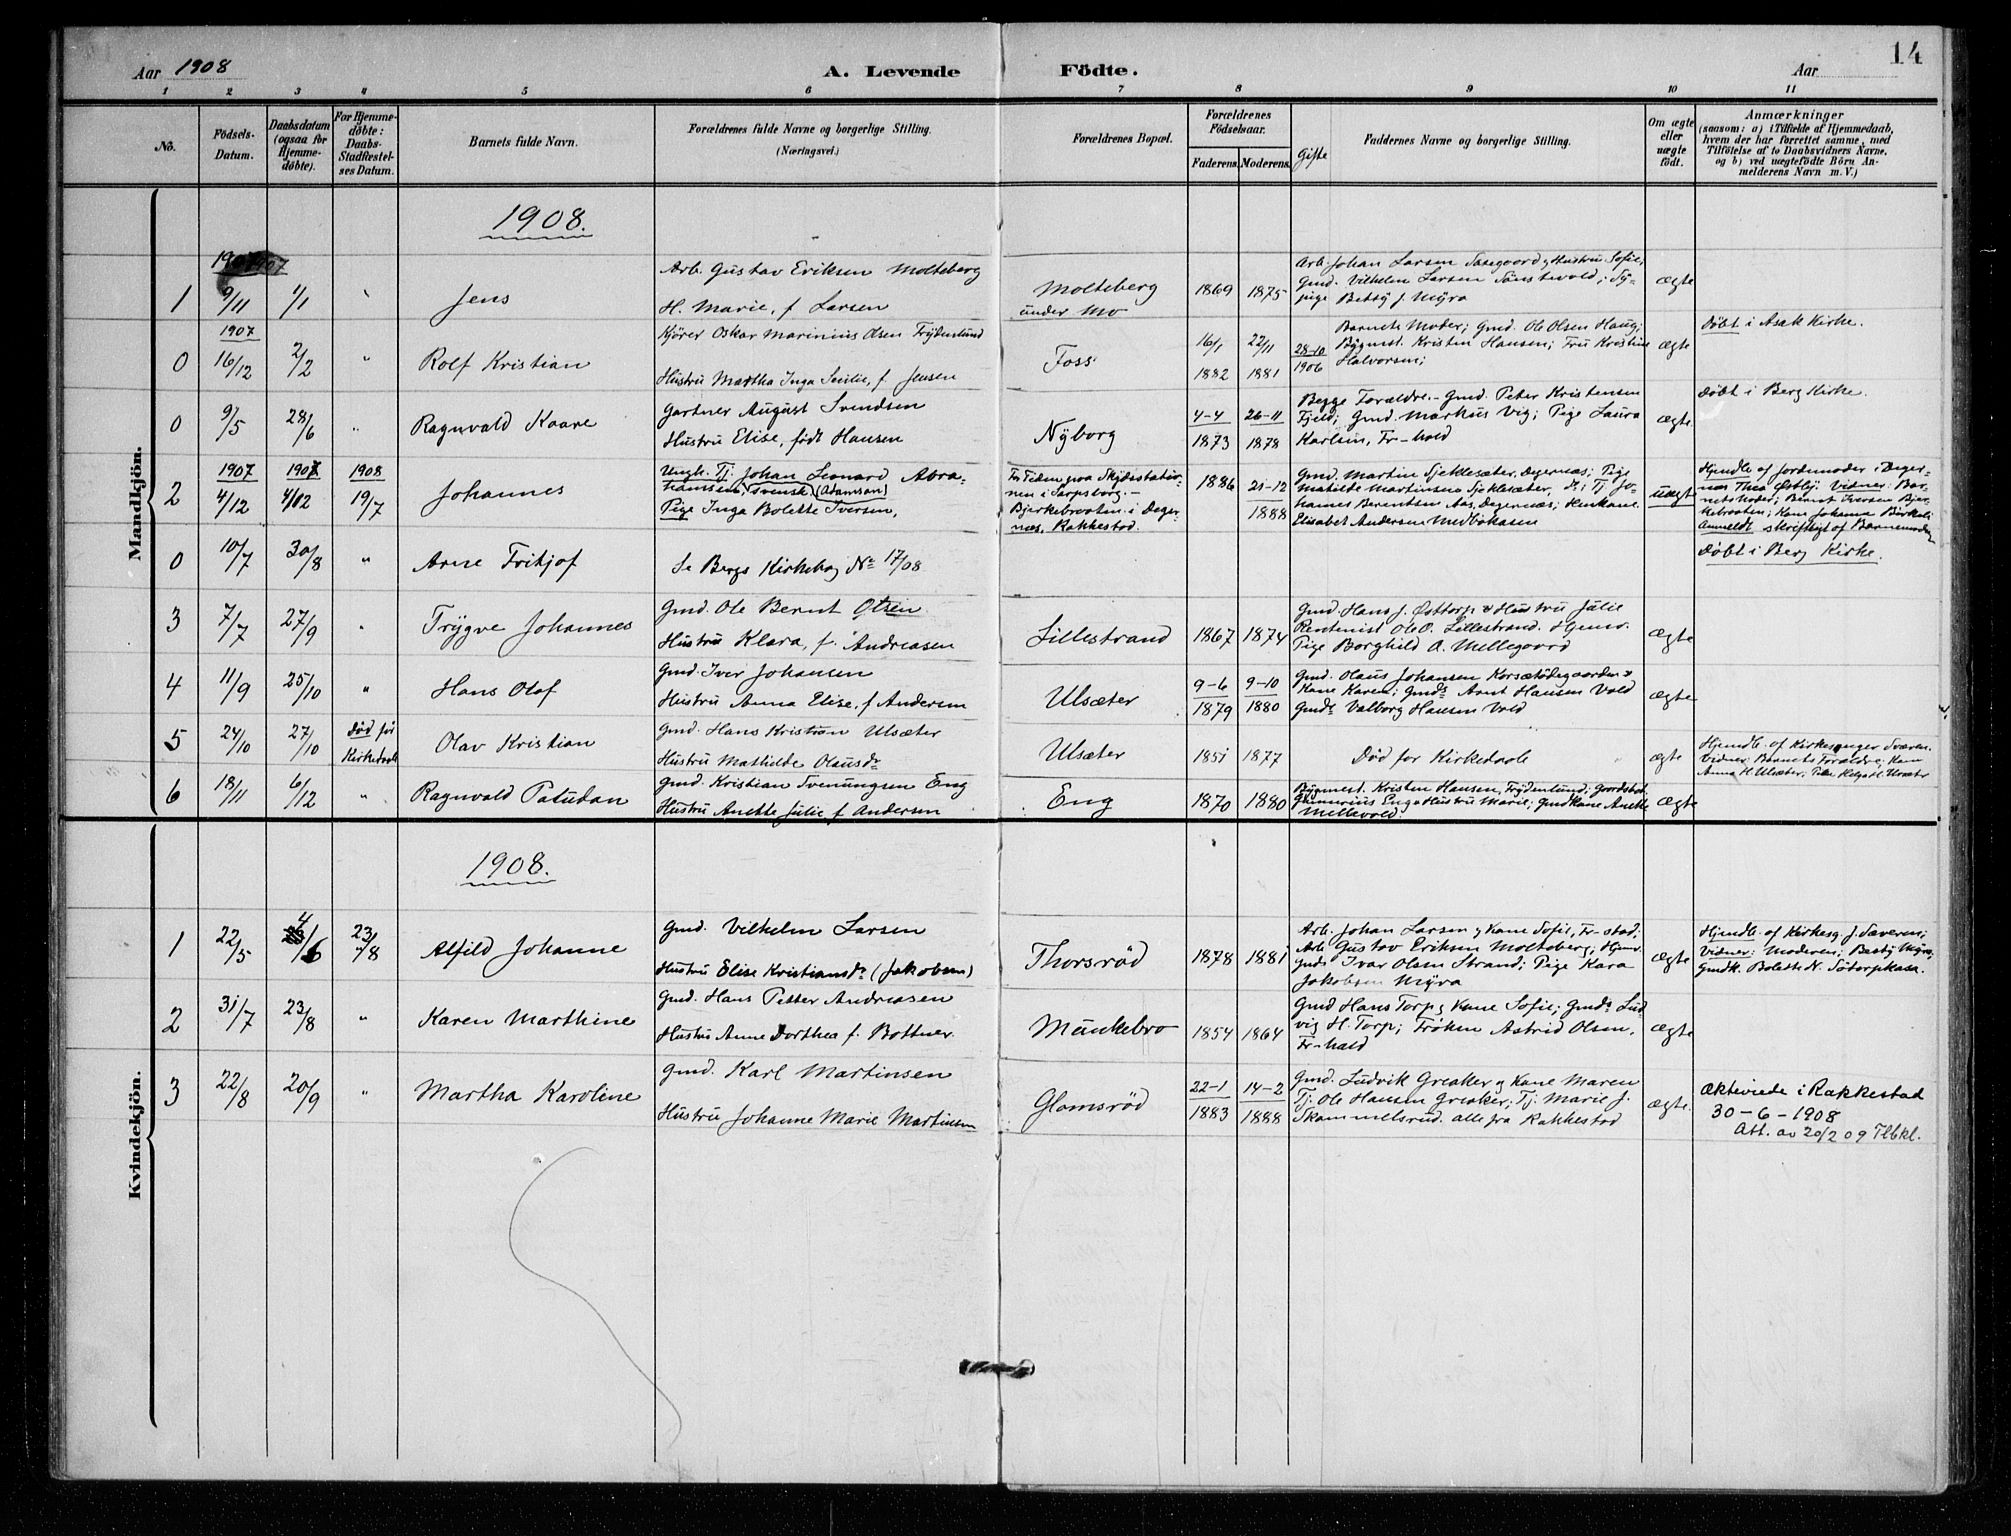 14
Aar 1908 A. Levende Födte. Aar
1 2 3 4 5 6 7 8 9 10 11
No. Födsels-Datum. Daabsdatum (ogsaa for Hjemme-döbte). For Hjemme-döbte: Daabs-Stadfæstel-ses Datum. Barnets fulde Navn. Forældrenes fulde Navne og borgerlige Stilling. (Næringsvei.) Forældrenes Bopæl. Forældrenes Födselsaar. Faderens. Moderens. Gifte Faddernes Navne og borgerlige Stilling. Om ægte eller uægte födt. Anmærkninger (saasom: a) i Tilfælde af Hjemmedaab, hvem der har forrettet samme, med Tilföielse af to Daabsvidners Navne, og b) ved uægtefödte Börn An-melderens Navn m. V.)
Mandkjön.
1908.
1907
1 9/11 1/1 " Jens
Arb. Gustav Eriksen Molteberg
H. Marie, f Larsen
Molteberg
under Mo
1869 1875
Arb. Johan Larsen & Hustru Sofie,
Gmd. Vilhelm Larsen
Pige Betsy J. Myra
ægte
1907
0 16/12 2/2 " Rolf Kristian
Kjörer Oskar Marinius Olsen Frydenlund
Hustru Martha Inga Secilie, f Jensen
Foss
16/1 1882 22/11 1881
28-10 1906
Barnets Moder; Gmd. Ole Olsen Haug;
Bygmest. Kristen Hansen; Fru Kristine
Halvorsen;
ægte
Döbt i Asak Kirke.
0 9/5 28/6 " Ragnvald Kaare
Gartner August Svendsen
Hustru Elise, födt Hansen
Nyborg
4-4 1873 26-11 1878
Begge Foraldre. - Gmd. Peter Kristensen
Fjeld; Gmd. Markus Vig; Pige Laura
Karlsen, Fr-hald
ægte
Döbt i Berg Kirke.
1907 1907 1908
2 4/12 4/12 19/7 Johannes
Ungk. Tj. Johan Leonard Abra-
hamsen, svensk (Adamson)
Pige Inga Bolette Iversen,
For Tiden paa Skydsstatio-
nen i Sarpsborg. -
Bjerkebraaten i Deger-
næs, Rakkestad.
1886 21-12 1888
Gmd. Martin Sjeklesæter, Degernæs; Pige
Matilde Martinsen Sjeklesæter, Tj. Jo-
hannes Berentsen Aas, Degernæs; Kone
Elisabet Andersen
uægte
Hjmdb. af Jordemoder i Deger-
næs Thea Østby. Vidner: Bar-
nets Moder; Bernt Iversen Bjer-
kebraaten; Kone Johanne
Anmeldt skriftligt af Barnemoderen
0 10/7 30/8 " Arne Fritjof
Se Bergs Kirkebog No 17/08
Döbt i Berg Kirke.
3 7/7 27/9 " Trygve Johannes
Gmd. Ole Bernt Olsen
Hustru Klara, f. Andreasen
Lillestrand
1867 1874
Gmd. Hans J. Østtorp & Hustru Julie
Rentenist Ole O. Lillestrand.
Pige Borghild A. Mellegaard
ægte
4 11/9 25/10 " Hans Olaf
Gmd. Iver Johansen
Hustru Anna Elise, f Andersen
Ulsæter
9-6 1879 9-10 1880
Gmd. Olaus Johansen Korsetødegaarden &
Kone Karen; Gmds. Arnt Hansen Vold
Gmds Valborg Hansen Vold
ægte
5 24/10 27/10 Död för Kirkedaab Olav Kristian
Gmd. Hans Kristian Ulsæter
Hustru Mathilde Olausdr
Ulsæter
1851 1877
Död for Kirkedaab
ægte
Hjmdb. af Kirkesanger Sværen.
Vidner: Barnets Foraldre; Kone
Anna H. Ulsæter, Pike Helga H. Ulsæter
6 18/11 6/12 " Ragnvald Paludan
Gmd. Kristian Svenungsen Eng
Hustru Anette Julie f Andersen
Eng
1870 1880
Bygmest. Kristen Hansen, Frydenlund; Gaardsbest.
Gunnerius Eng & Hustru Marie; Gmdkone Anette
Mellevold.
ægte
Kvindekjön.
1908.
1 22/5 4/6 23/8 Alfild Johanne
Gmd. Vilhelm Larsen
Hustru Elise Kristiansdr. (Jakobsen)
Thorsröd
1878 1881
Arb. Johan Larsen & Kone Sofie, Fr-stad;
Arb. Gustav Eriksen Molteberg;
Gmds Ivar Olsen Strand; Pige Kara
Jakobsen Myra
ægte
Hjmdb. of Kirkesg. J. Sæveren;
Vidner: Moderen; Betsy Myra,
Gmdk. Bolette N. Sötorpkasa.
2 31/7 23/8 " Karen Marthine
Gmd. Hans Petter Andreasen
Hustru Anne Dorthea f. Bottner.
Munkebro
1854 1864
Gmd Hans Torp & Kone Sofie; Gmds Lud-
vig H. Torp; Fröken Astrid Olsen,
Fr-hald
ægte
3 22/8 20/9 " Martha Karoline
Gmd. Karl Martinsen
Hustru Johanne Marie Martinsen
Glomsröd
22-1 1883 14-2 1888
Gmd. Ludvik Greaker & Kone Maren
Tj. Ole Hansen Greaker; Tj. Marie J.
Skammelsrud. alle fra Rakkestad
ægte.
Ækteviede i Rakkestad
30-6-1908
Att. av 20/2 09 Tlbkl.